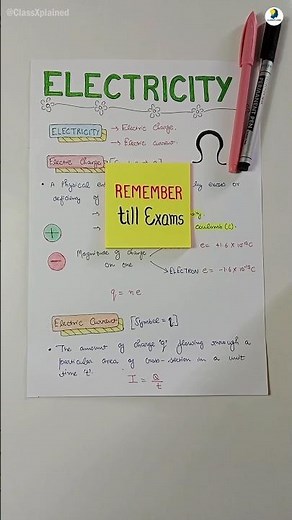 @ClassXplained
ELECTRICITY
ELECTRICITY → Electric Charge.
→ Electric current.
Electric Charge
• A Physical by excess or
deficiency of
REMEMBER
till Exams
→ coulombs (C).
+
Magnitude of charge
on one
e = +1.6 X 10⁻¹⁹C
−
ELECTRON e = -1.6 X 10⁻¹⁹C
q = ne
Electric Current [Symbol = q]
• The amount of charge 'q' flowing through a
particular area of cross-section in a unit
time 't'.
I = Q/t